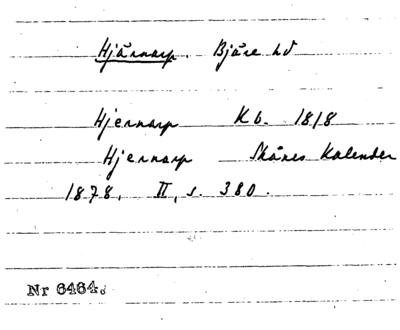 Hjärnarp. Bjäre hd
Hjernarp Kb. 1818
Hjernarp Skånes Kalender
1878, II, s. 380.
Nr 6464.